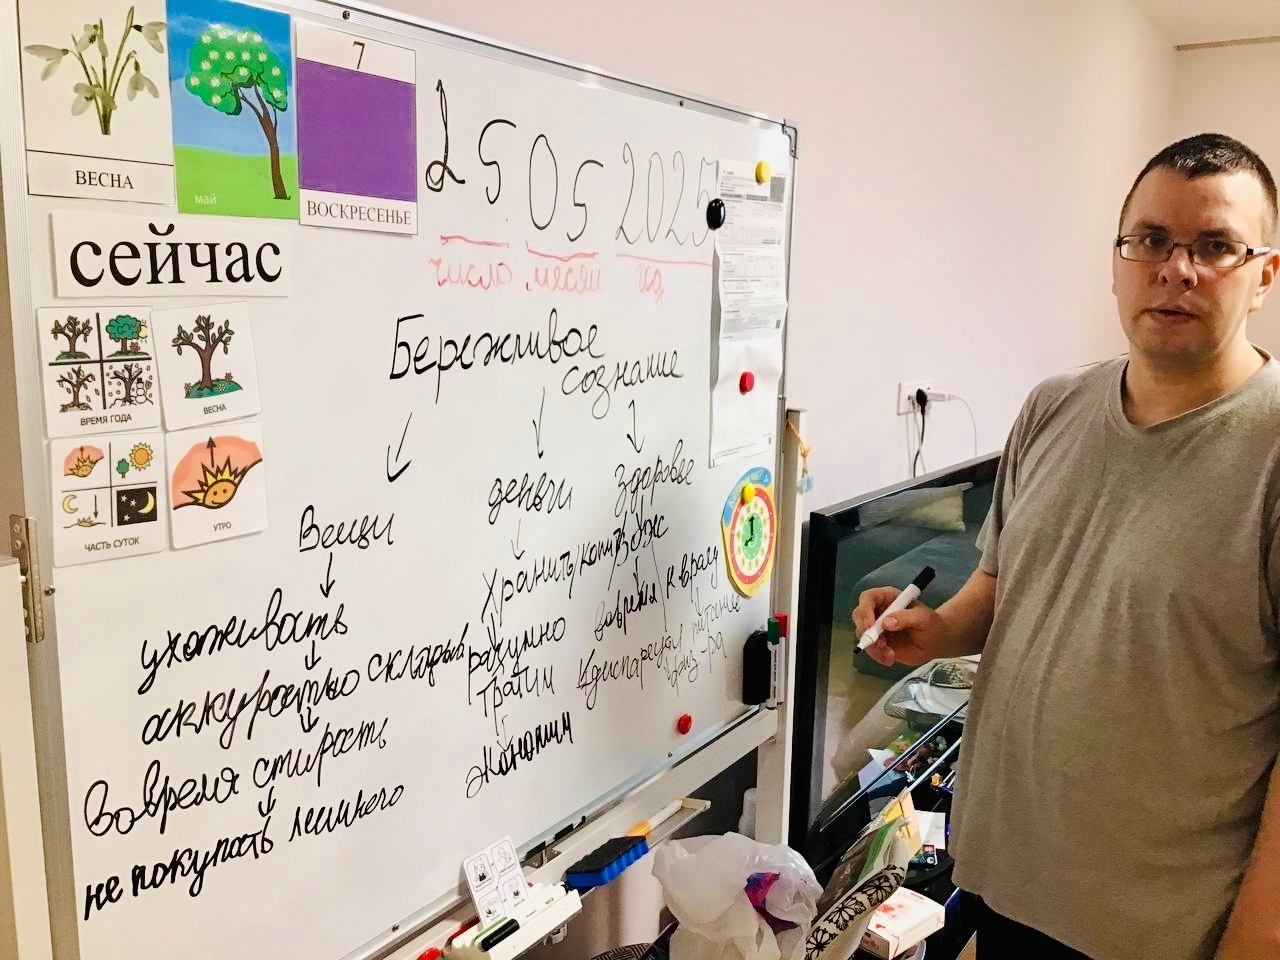 7
ВЕСНА
май
ВОСКРЕСЕНЬЕ
25.05 2025
число, месяц год
сейчас
ВРЕМЯ ГОДА
ВЕСНА
ЧАСТЬ СУТОК
УТРО
Бережливое
сознание
Вещи
ухаживость
аккуратно складывать
Вовремя стирать
не покупать лишнего
деньги
хранить/копить
разумно
тратим
экономим
здоровье
ЗОЖ
вовремя к врачу
питание
физ-ра